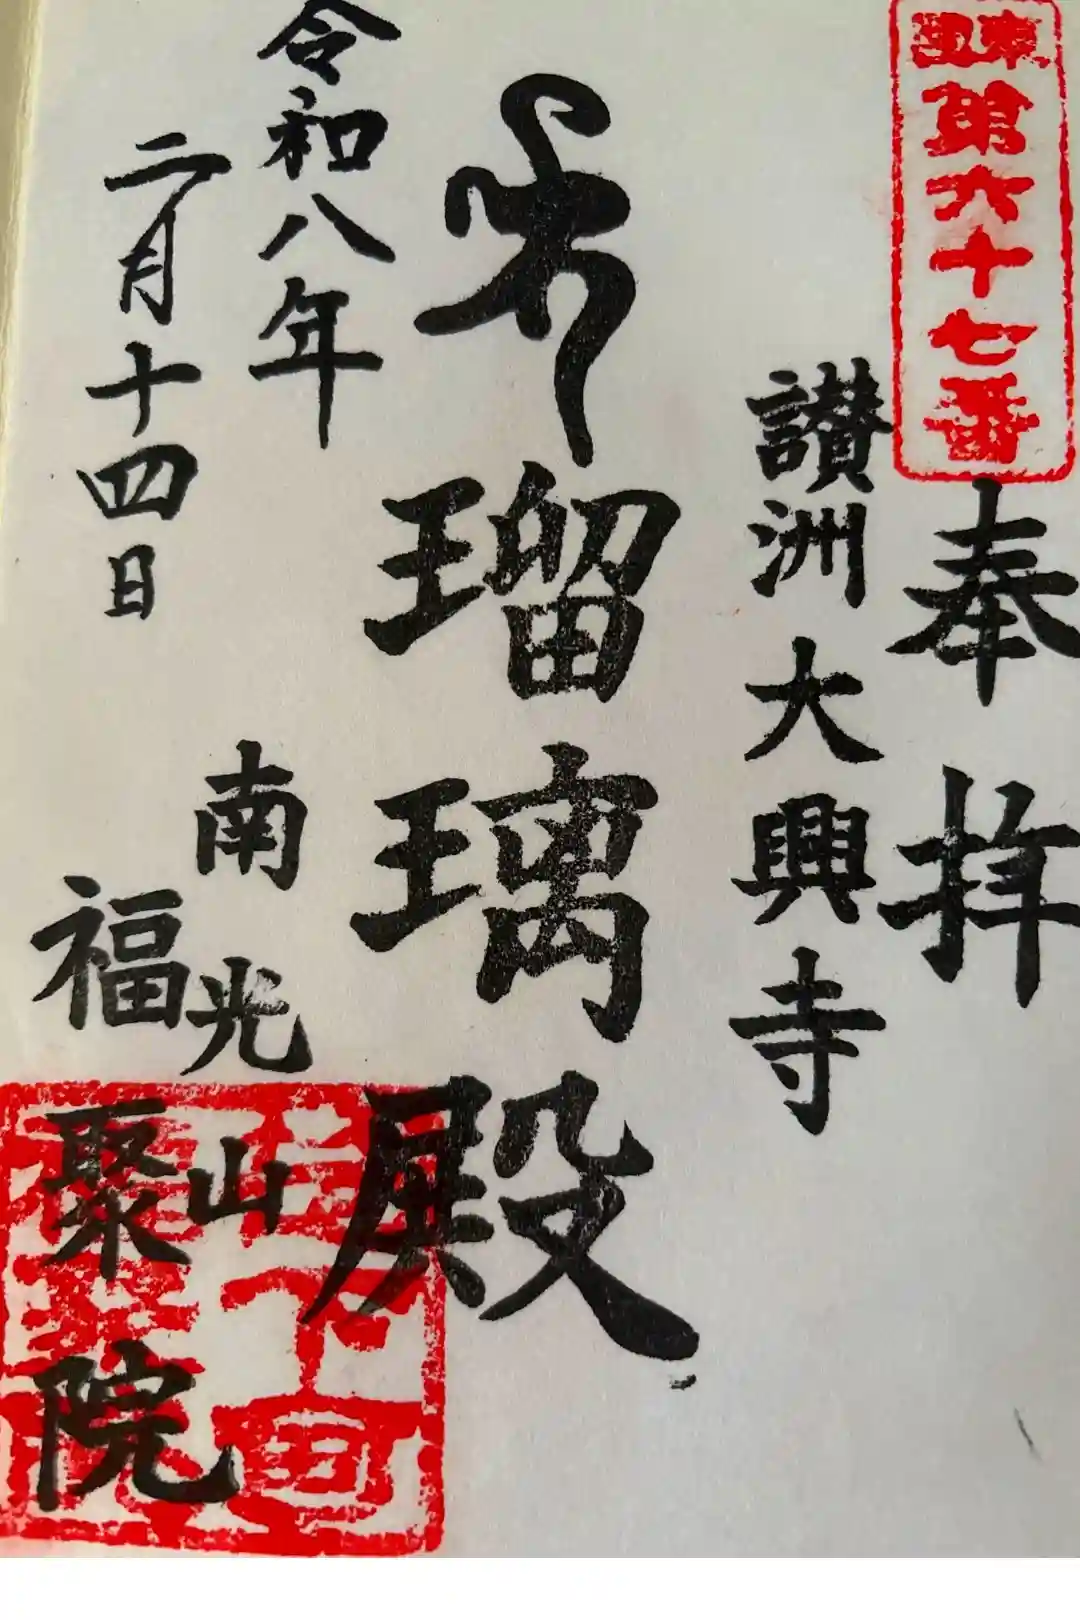 第六十七番
奉拝
讃洲大興寺
瑠璃殿
令和八年
二月十四日
南光山
福聚院